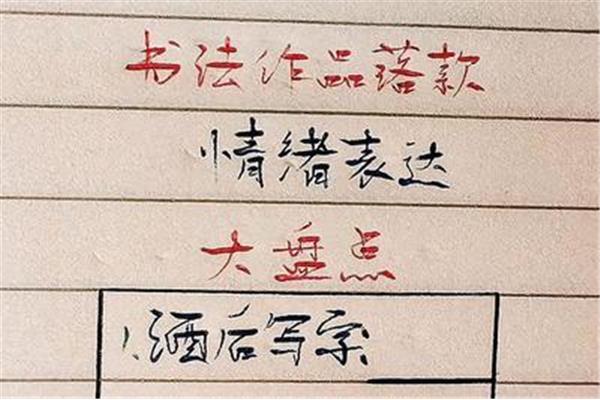 书法作品落款
情绪表达
大盘点
1、酒后写字